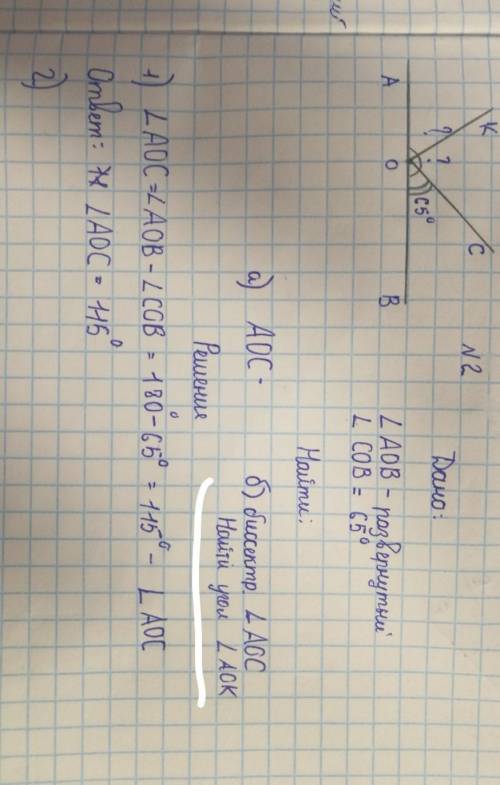 N2
K
C
?
?
65°
A
O
B
Дано:
∠AOB - развернутый
∠COB = 65°
Найти:
а) AOC -
б) биссектр. ∠AOC
Найти угол ∠AOK
Решение
1) ∠AOC = ∠AOB - ∠COB = 180° - 65° = 115° - ∠AOC
Ответ: ∠AOC = 115°
2)